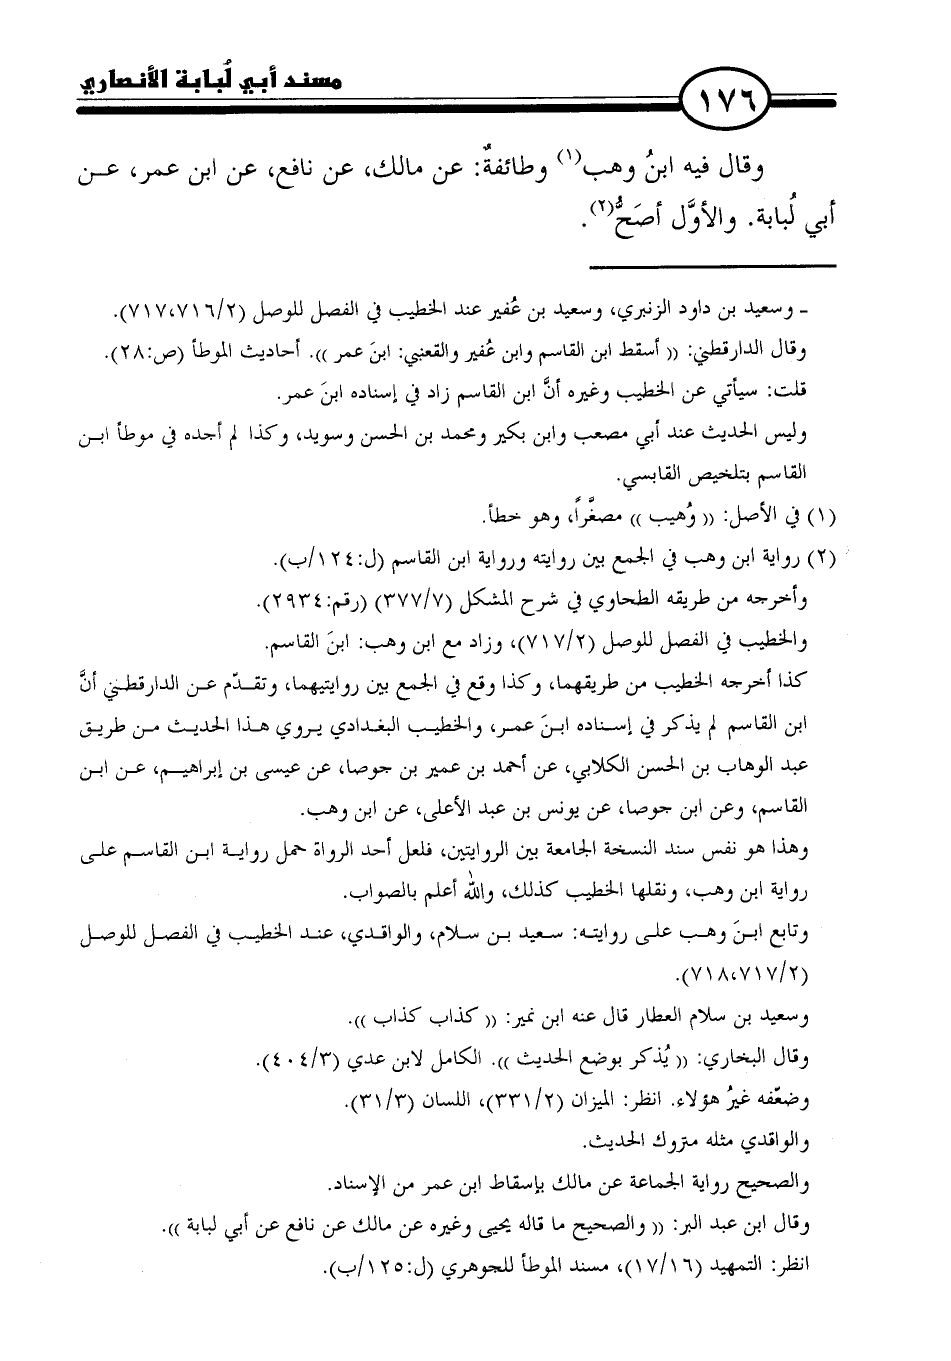 ١٧٦
مسند أبي لُبابة الأنصاري
وقال فيه ابنُ وهب(١) وطائفةٌ: عن مالك، عن نافع، عن ابن عمر، عـن
أبي لُبابة. والأوَّل أصَحُّ(٢).
ـ وسعيد بن داود الزنبري، وسعيد بن عُفير عند الخطيب في الفصل للوصل (٧١٦/٢،٧١٧).
وقال الدارقطني: (( أسقط ابن القاسم وابن عُفير والقعنبي: ابنَ عمر )). أحاديث الموطأ (ص:٢٨).
قلت: سيأتي عن الخطيب وغيره أنَّ ابن القاسم زاد في إسناده ابنَ عمر.
وليس الحديث عند أبي مصعب وابن بكير ومحمد بن الحسن وسويد، وكذا لم أجده في موطأ ابـن
القاسم بتلخيص القابسي.
(١) في الأصل: (( وُهيب )) مصغَّراً، وهو خطأ.
(٢) رواية ابن وهب في الجمع بين روايته ورواية ابن القاسم (ل:١٢٤/ب).
وأخرجه من طريقه الطحاوي في شرح المشكل (٣٧٧/٧) (رقم:٢٩٣٤).
والخطيب في الفصل للوصل (٧١٧/٢)، وزاد مع ابن وهب: ابنَ القاسم.
كذا أخرجه الخطيب من طريقهما، وكذا وقع في الجمع بين روايتيهما، وتقـدّم عـن الدارقطـني أنَّ
ابن القاسم لم يذكر في إسناده ابـنَ عمـر، والخطيـب البغـدادي يـروي هـذا الحديث مـن طريق
عبد الوهاب بن الحسن الكلابي، عن أحمد بن عمير بن جوصا، عن عيسى بن إبراهيـم، عـن ابـن
القاسم، وعن ابن جوصا، عن يونس بن عبد الأعلى، عن ابن وهب.
وهذا هو نفس سند النسخة الجامعة بين الروايتين، فلعل أحد الرواة حمل روايـة ابـن القاسـم علـى
رواية ابن وهب، ونقلها الخطيب كذلك، والله أعلم بالصواب.
وتابع ابـنَ وهـب علـى روايتـه: سـعيد بـن سـلام، والواقـدي، عنـد الخطيـب في الفصـل للوصل
(٧١٧/٢،٧١٨).
وسعيد بن سلام العطار قال عنه ابن نمير: (( كذاب كذاب )).
وقال البخاري: (( يُذكر بوضع الحديث )). الكامل لابن عدي (٤٠٤/٣).
وضعّفه غيرُ هؤلاء. انظر: الميزان (٣٣١/٢)، اللسان (٣١/٣).
والواقدي مثله متروك الحديث.
والصحيح رواية الجماعة عن مالك بإسقاط ابن عمر من الإسناد.
وقال ابن عبد البر: (( والصحيح ما قاله يحيى وغيره عن مالك عن نافع عن أبي لبابة )).
انظر: التمهيد (١٧/١٦)، مسند الموطأ للجوهري (ل:١٢٥/ب).